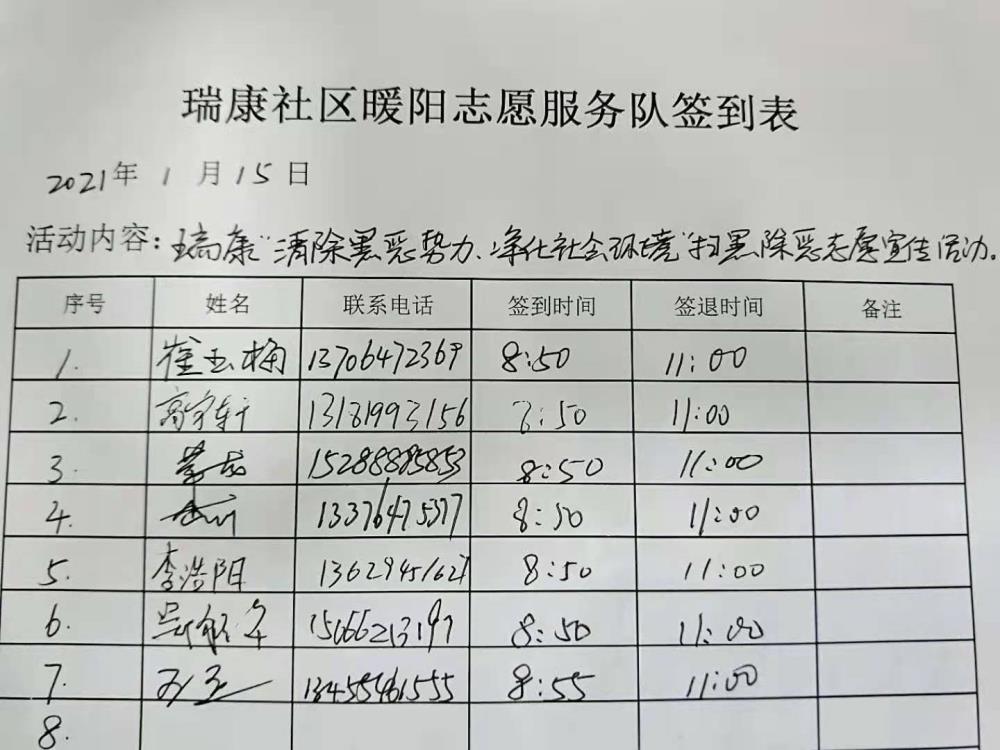 瑞康社区暖阳志愿服务队签到表
2021年 1 月 15 日
活动内容：瑞康"清除黑恶势力、净化社会环境"扫黑除恶志愿宣传活动.
序号 姓名 联系电话 签到时间 签退时间 备注
1. 崔玉梅 13706472369 8:50 11:00
2. 高宇轩 13181993156 8:50 11:00
3. 15288885853 8:50 11:00
4. 13376475377 8:50 11:00
5. 李浩阳 8:50 11:00
6. 15066213197 8:50 11:00
7. 8:55 11:00
8.